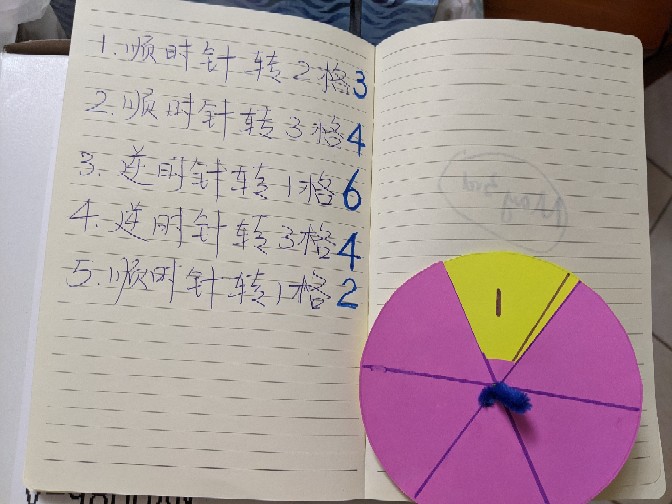 1.顺时针转2格3
2.顺时针转3格4
3.逆时针转1格6
4.逆时针转3格4
5.顺时针转1格2
1